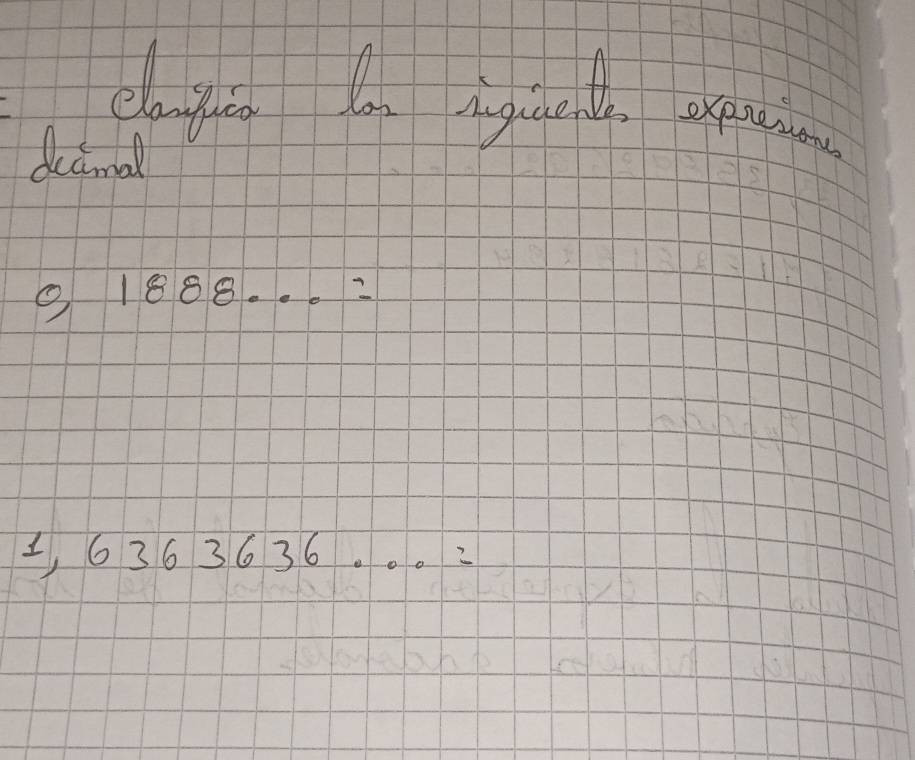 Clasifica las siguientes expresiones
decimal
0, 1888... =
1, 6363636 .... =